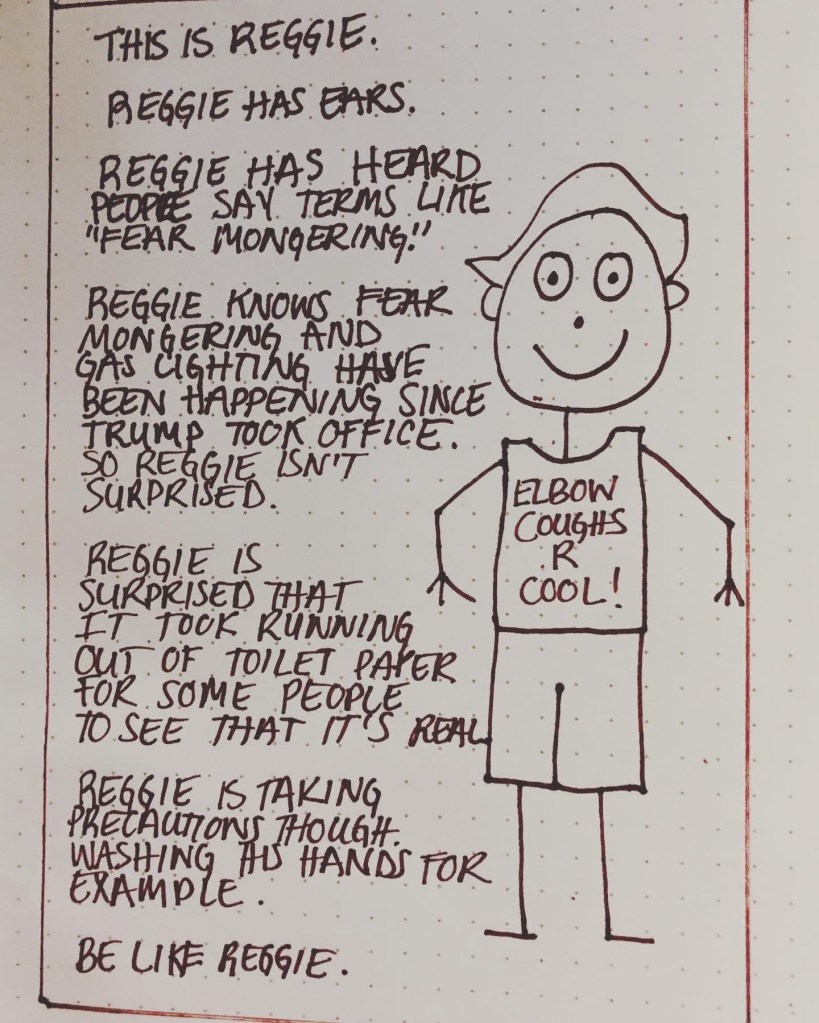 THIS IS REGGIE.
REGGIE HAS EARS.
REGGIE HAS HEARD
PEOPLE SAY TERMS LIKE
"FEAR MONGERING."
REGGIE KNOWS FEAR
MONGERING AND
GAS LIGHTING HAVE
BEEN HAPPENING SINCE
TRUMP TOOK OFFICE.
SO REGGIE ISN'T
SURPRISED.
REGGIE IS
SURPRISED THAT
IT TOOK RUNNING
OUT OF TOILET PAPER
FOR SOME PEOPLE
TO SEE THAT IT'S REAL.
REGGIE IS TAKING
PRECAUTIONS THOUGH.
WASHING HIS HANDS FOR
EXAMPLE.
BE LIKE REGGIE.
ELBOW
COUGHS
R
COOL!